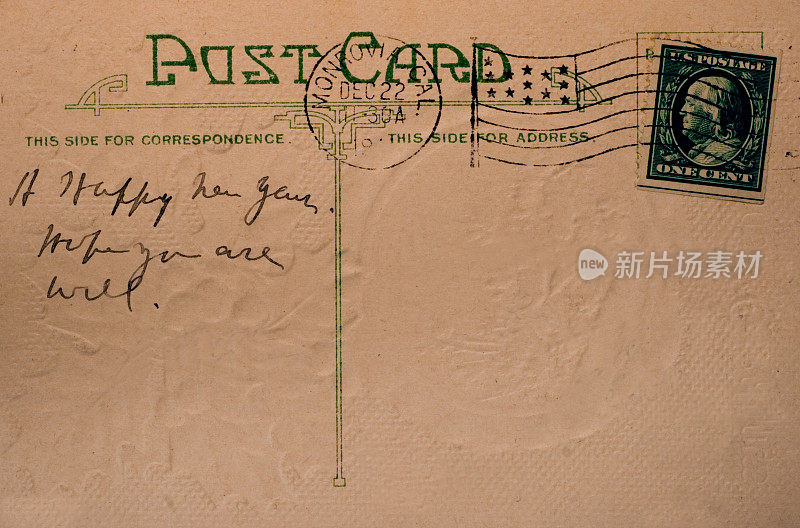 POST CARD
MONROVIA, CAL.
DEC 22
30A
U.S. POSTAGE
ONE CENT
THIS SIDE FOR CORRESPONDENCE.
THIS SIDE FOR ADDRESS.
A Happy New Year.
Hope you are
well.
new 新片场素材